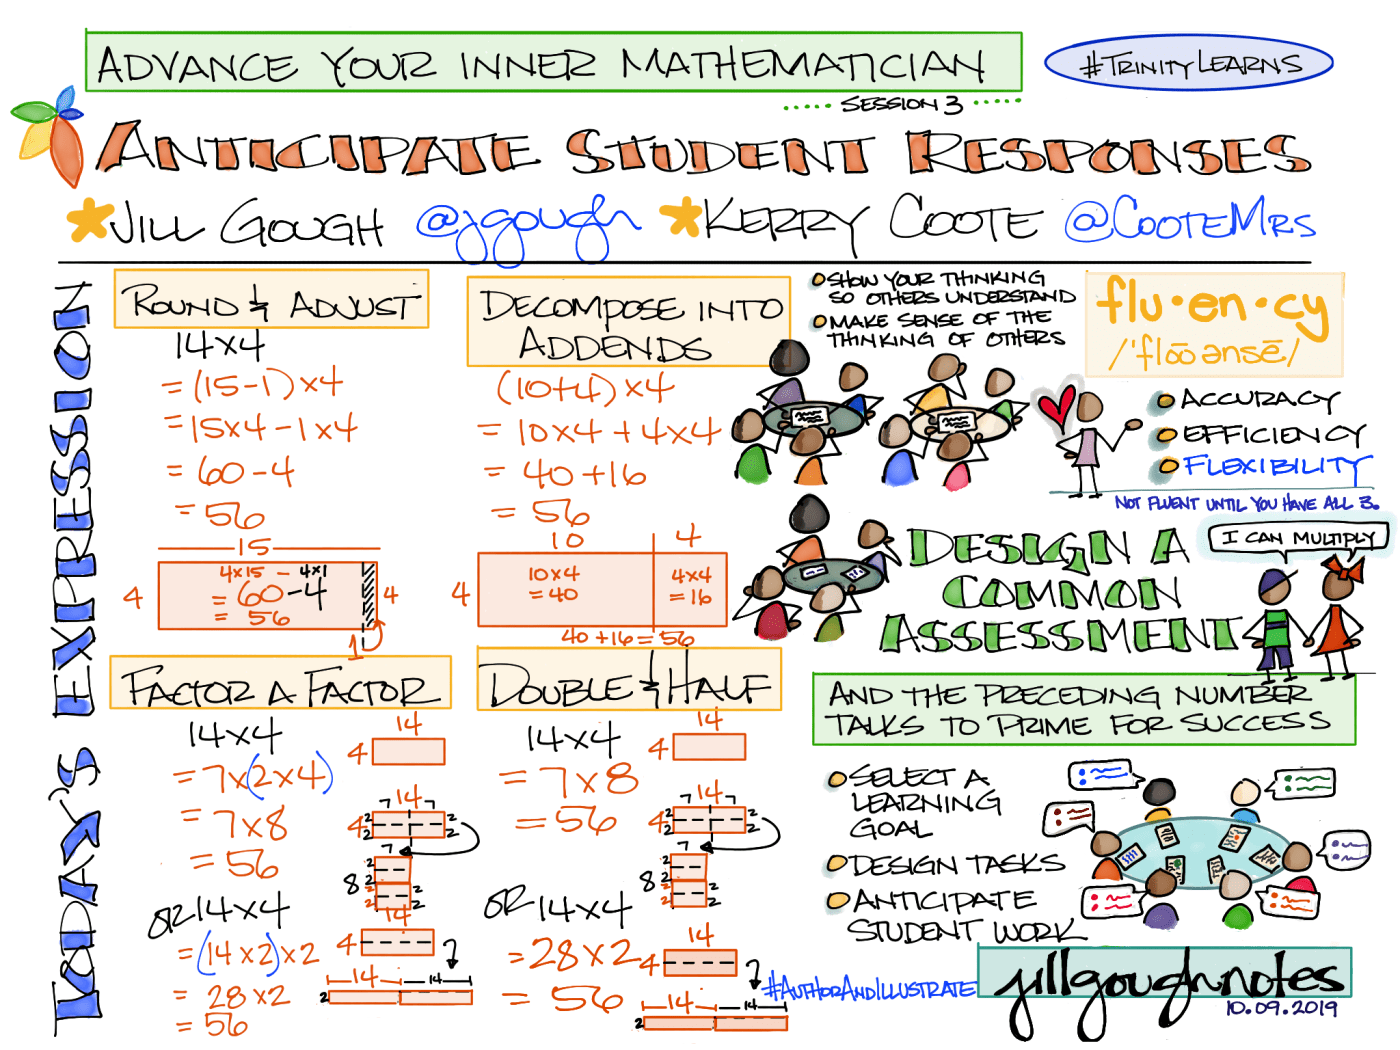 ADVANCE YOUR INNER MATHEMATICIAN
#TRINITYLEARNS
SESSION 3
ANTICIPATE STUDENT RESPONSES
JILL GOUGH @jgough KERRY COOTE @COOTEMRS
TODAY'S EXPRESSION
ROUND & ADJUST
14×4
=(15-1)×4
=15×4-1×4
=60-4
=56
15
4×15 - 4×1
4 = 60-4 4
= 56
1
DECOMPOSE INTO
ADDENDS
(10+4)×4
= 10×4 + 4×4
= 40+16
= 56
10 4
4 10×4 4×4
=40 =16
40+16=56
FACTOR A FACTOR
14×4
=7×(2×4)
= 7×8
= 56
OR 14×4
=(14×2)×2
= 28×2
= 56
14
4
7 14 7
4 2 2
2 2
7
8 2 2
2 2
2 2
2 2
14
4
14 14
2
DOUBLE & HALF
14×4
= 7×8
= 56
OR 14×4
=28×2
= 56
14
4
7 14 7
4 2 2
2 2
7
8 2 2
2 2
2 2
2 2
14
4
14 14
2
SHOW YOUR THINKING
SO OTHERS UNDERSTAND
MAKE SENSE OF THE
THINKING OF OTHERS
flu·en·cy
/ˈflo͞oənsē/
ACCURACY
EFFICIENCY
FLEXIBILITY
NOT FLUENT UNTIL YOU HAVE ALL 3.
I CAN MULTIPLY
DESIGN A
COMMON
ASSESSMENT
AND THE PRECEDING NUMBER
TALKS TO PRIME FOR SUCCESS
SELECT A
LEARNING
GOAL
DESIGN TASKS
ANTICIPATE
STUDENT WORK
#AUTHORANDILLUSTRATE
jillgoughnotes
10.09.2019